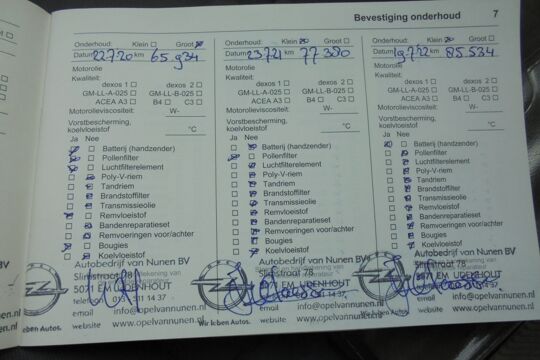 Bevestiging onderhoud 7
Onderhoud: Klein Groot
Datum 22720 km 65.934
Motorolie
Kwaliteit:
dexos 1 dexos 2
GM-LL-A-025 GM-LL-B-025
ACEA A3 B4 C3
Motorolieviscositeit: W-
Vorstbescherming,
koelvloeistof °C
Ja Nee
Batterij (handzender)
Pollenfilter
Luchtfilterelement
Poly-V-riem
Tandriem
Brandstoffilter
Transmissieolie
Remvloeistof
Bandenreparatieset
Remvoeringen voor/achter
Bougies
Koelvloeistof
Autobedrijf van Nunen BV
5071 EM UDENHOUT
info@opelvannunen.nl
website www.opelvannunen.nl
Onderhoud: Klein Groot
Datum 23721 km 77 380
Motorolie
Kwaliteit:
dexos 1 dexos 2
GM-LL-A-025 GM-LL-B-025
ACEA A3 B4 C3
Motorolieviscositeit: W-
Vorstbescherming,
koelvloeistof °C
Ja Nee
Batterij (handzender)
Pollenfilter
Luchtfilterelement
Poly-V-riem
Tandriem
Brandstoffilter
Transmissieolie
Remvloeistof
Bandenreparatieset
Remvoeringen voor/achter
Bougies
Koelvloeistof
Autobedrijf van Nunen BV
Slimstraat 78
5071 EM UDENHOUT
email info@opelvannunen.nl
Wir leben Autos. website www.opelvannunen.nl
Onderhoud: Klein Groot
Datum 19722 km 85.534
Motorolie
Kwaliteit:
dexos 1 dexos 2
GM-LL-A-025 GM-LL-B-025
ACEA A3 B4 C3
Motorolieviscositeit: W-
Vorstbescherming,
koelvloeistof °C
Ja Nee
Batterij (handzender)
Pollenfilter
Luchtfilterelement
Poly-V-riem
Tandriem
Brandstoffilter
Transmissieolie
Remvloeistof
Bandenreparatieset
Remvoeringen voor/achter
Bougies
Koelvloeistof
Autobedrijf van Nunen BV
Slimstraat 78
5071 EM UDENHOUT
email info@opelvannunen.nl
Wir leben Autos. website www.opelvannunen.nl